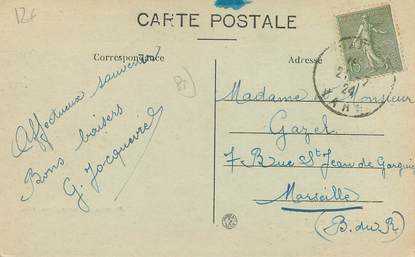 126
CARTE POSTALE
Correspondance
Adresse
81
Affectueux souvenirs
Bons baisers
G. Jacquevie
24
Madame & Monsieur
Gazel
7 Rue St Jean de Garguier
Marseille
(B. du R)